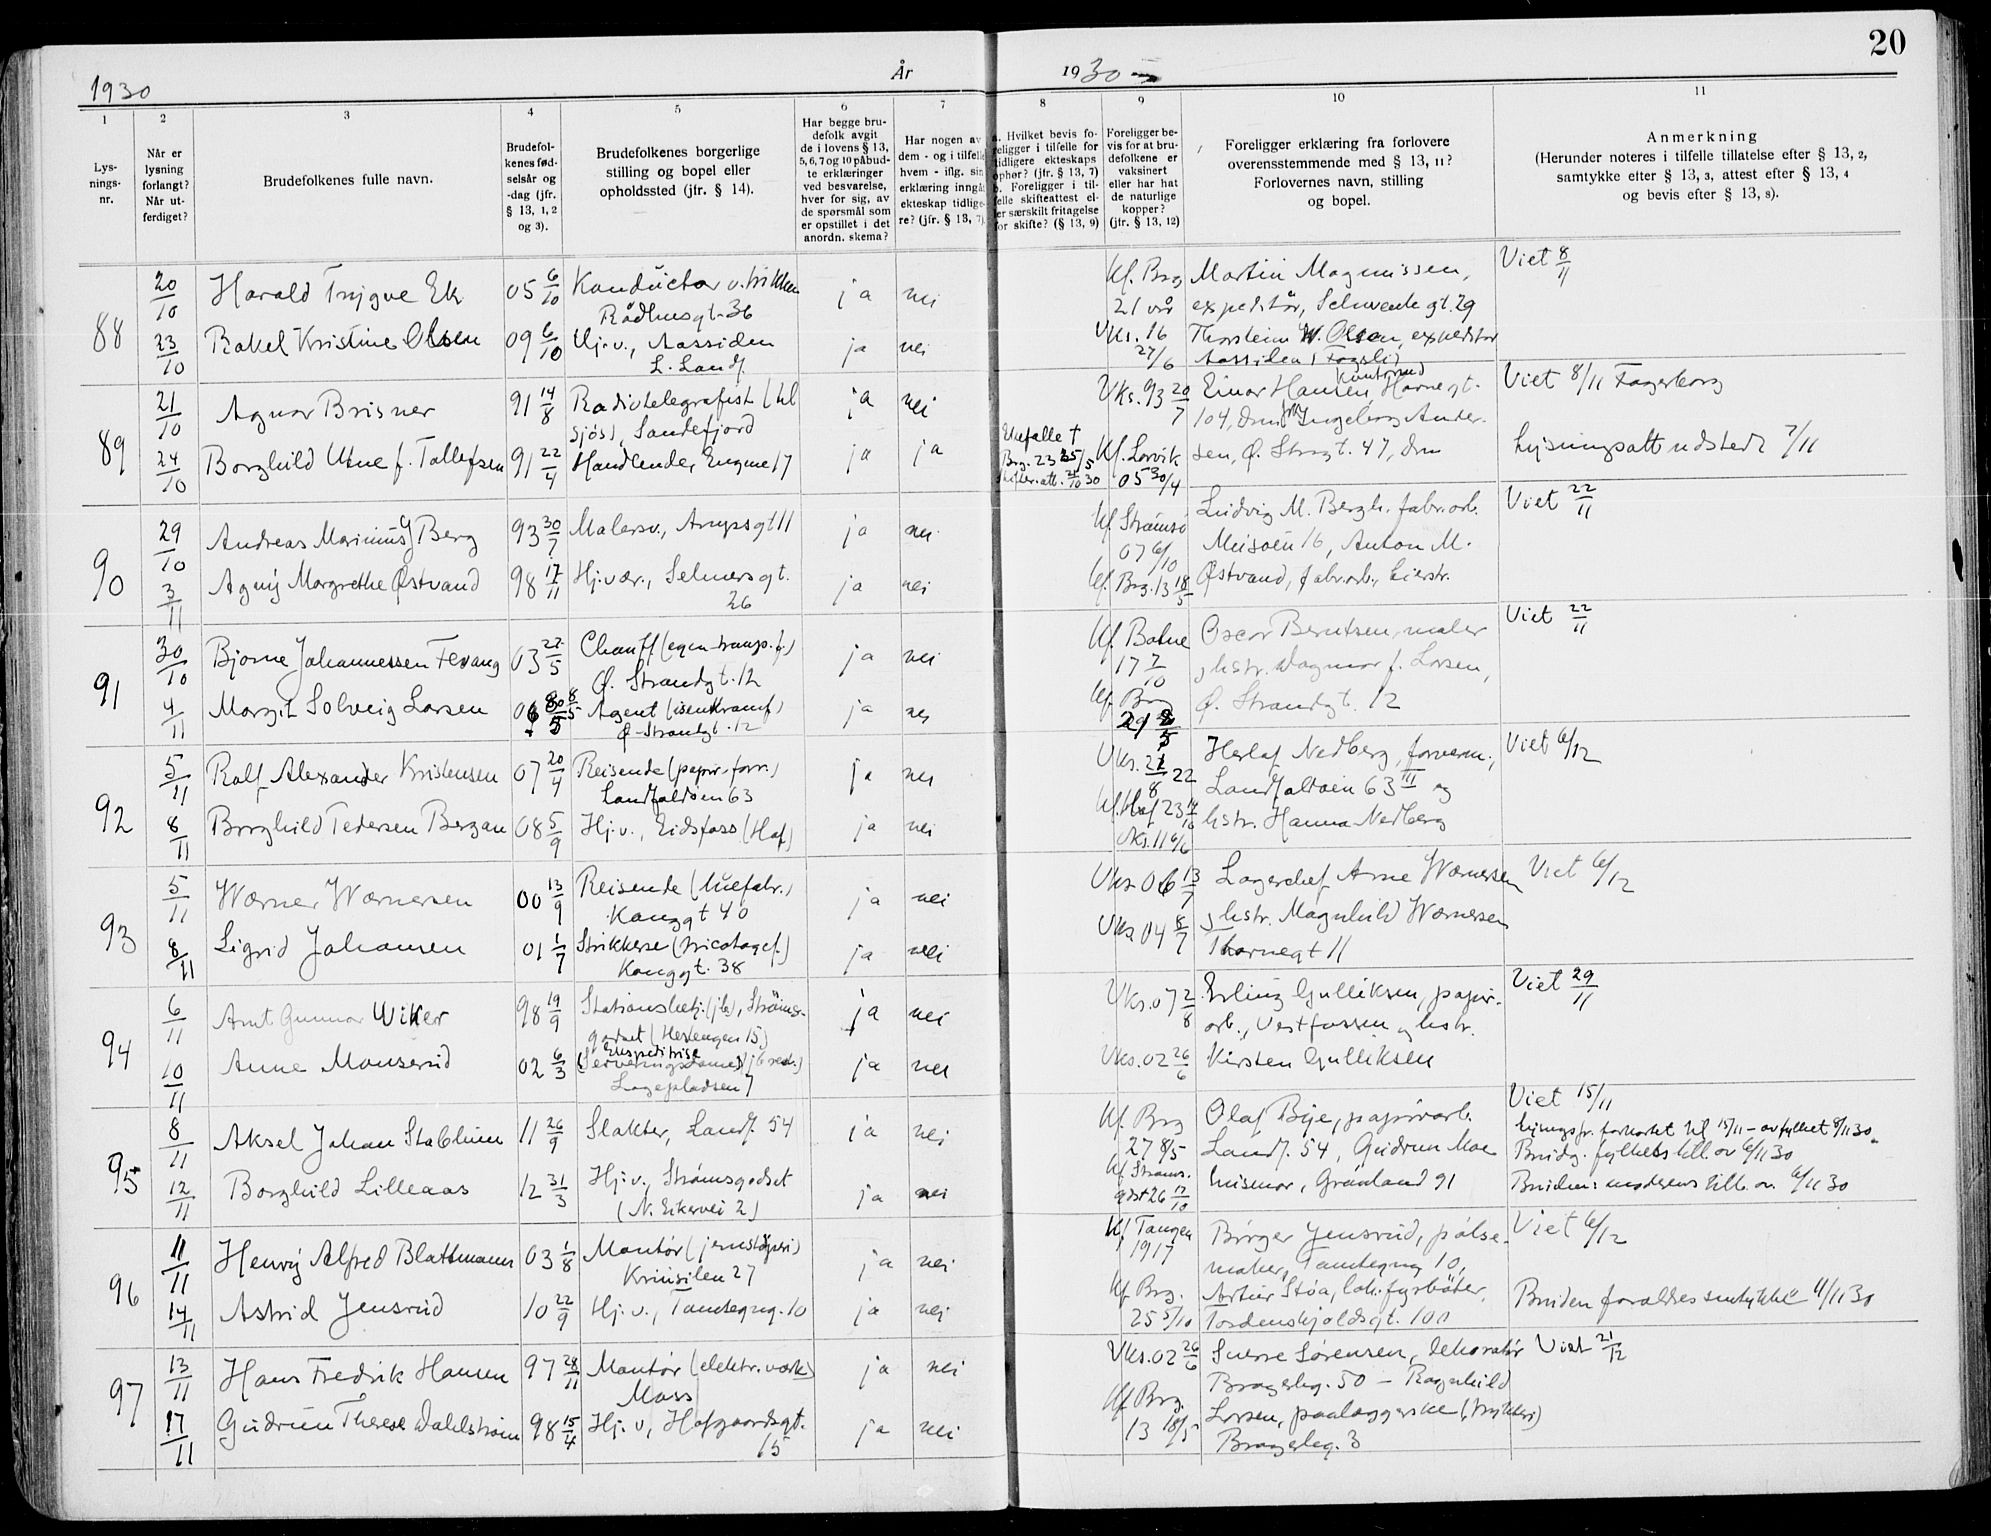 20
1930
År
1930
1
2
3
4
5
6
7
8
9
10
11
Lys-
nings-
nr.
Når er
lysning
forlangt?
Når ut-
ferdiget?
Brudefolkenes fulle navn.
Brudefol-
kenes fød-
selsår og
-dag (jfr.
§ 13, 1, 2
og 3).
Brudefolkenes borgerlige
stilling og bopel eller
opholdssted (jfr. § 14).
Har begge bru-
defolk avgit
de i lovens § 13,
5, 6, 7 og 10 påbud-
te erklæringer
ved besvarelse,
hver for sig, av
de spørsmål som
er opstillet i det
anordn. skema?
Har nogen av
dem - og i tilfelle
hvem - iflg. sin
erklæring inngåt
ekteskap tidlige-
re? (jfr. § 13, 7).
a. Hvilket bevis fo-
religger i tilfelle for
tidligere ekteskaps
ophør? (jfr. § 13, 7)
b. Foreligger i til-
felle skifteattest el-
ler særskilt fritagelse
for skifte? (§ 13, 9)
Foreligger be-
vis for at bru-
defolkene er
vaksinert
eller har hat
de naturlige
kopper?
(jfr. § 13, 12)
Foreligger erklæring fra forlovere
overensstemmende med § 13, 11?
Forlovernes navn, stilling
og bopel.
Anmerkning
(Herunder noteres i tilfelle tillatelse efter § 13, 2,
samtykke efter § 13, 3, attest efter § 13, 4
og bevis efter § 13, 8).
88
20/10 Harald Trygve Ek 05 6/10 Konductør v. trikken ja nei Kf. Brg Martin Magnussen, Viet 8/11
Rådhusgt. 36 21 vår expeditør, Schwenckegt. 29
23/10 Rakel Kristine Olsen 09 6/10 Hj.v., Aassiden ja nei Vks. 16 Thorstein W. Olsen, expeditør
L. Landf. 27/6 Aassiden (Fagerli)
89
21/10 Agnar Brisner 91 14/8 Radiotelegrafist (til ja nei Vks. 93 20/7 Einar Hansen, Havnegt. Viet 8/11 Fagerborg
sjøs), Sandefjord 104, Drm Ingeborg Ander-
24/10 Borghild Utne f. Tollefsen 91 22/4 Handlende, Engene 17 ja ja Kf. Larvik sen, Ø. Strgt. 47, Drm Lysningsatt udstedt 7/11
05 30/4
90
29/10 Andreas Marinius Berg 93 30/7 Malersv., Arupsgt 11 ja nei Kf. Strømsø Ludvig M. Bergh. fabr.arb. Viet 22/11
07 6/10 Muusøen 16, Anton M.
3/11 Agny Margrethe Østvand 98 17/11 Hj.vær., Selmersgt. ja nei Kf. Brg. 13 18/5 Østvand, fabr.arb., Lierstr.
26
91
30/10 Bjarne Johannessen Fevang 03 22/5 Chauff (egen transp.f.) ja nei Kf. Botne Oscar Berntsen, maler Viet 22/11
Ø. Strandgt. 12 17 7/10 og hstr. Dagmar f. Larsen,
4/11 Margit Solveig Larsen 8/5 Agent (isenkramf.) ja nei Kf. Brg Ø. Strandgt. 12
Ø. Strandgt. 12
92
5/11 Ralf Alexander Kristensen 07 20/4 Reisende (papir-forr.) ja nei Vks. 21/8 22 Herlaf Nedberg, forverm., Viet 6/12
Landfaldøen 63 Landfaldøen 63 III og
8/11 Borghild Tedersen Bergan 08 5/9 Hj.v., Eidsfoss (Hof) ja nei Kf. Hof 23 14/10 hstr. Hanna Nedberg
Vks. 11 6/6
93
5/11 Werner Wernersen 00 13/9 Reisende (luefabr.) ja nei Vks 06 13/7 Lagerchef Arne Wernersen Viet 6/12
Konggt 40 og hstr. Magnhild Wernersen
8/11 Sigrid Johansen 01 1/7 Strikkerse (tricotagef.) ja nei Vks 04 8/7 Thornegt 11
Konggt. 38
94
6/11 Arnt Gunnar Wiker 98 19/9 Stationsbetj. (jb), Strøms- ja nei Vks. 07 2/8 Erling Gulliksen, papir- Viet 29/11
godset (Hestengen 15) arb., Vestfossen og hstr.
10/11 Anne Monserud 02 6/3 Expeditrise (Serveringsdame) (jb rest.) ja nei Vks. 02 26/6 Kirsten Gulliksen
Lagepladsen 7
95
8/11 Aksel Johan Stablum 11 26/9 Slakter, Landf. 54 ja nei Kf. Brg Olaf Bye, papirarb. Viet 15/11
27 8/5 Landf. 54, Gudrun Moe lysningsfr. forkortet til 15/11 - av fylket 8/11 30.
12/11 Borghild Lilleaas 12 31/3 Hj.v., Strømsgodset ja nei Kf. Strøms- husmor, Grønland 91 Brudg. fylkets till. av 6/11 30
(N. Eikervei 2) gdst 26 17/10 Bruden: moderens till. av. 6/11 30
96
11/11 Henry Alfred Blattmann 03 1/8 Montør (jernstøperi) ja nei Kf Tangen Børger Jensrud, pølse- Viet 6/12
Krusilen 27 1917 maker, Tomtegng 10,
14/11 Astrid Jensrud 10 22/9 Hj.v., Tomtegng. 10 ja nei Kf. Brg. Artur Støa, lok.fyrbøter, Bruden forældres samtykke 11/11 30
25 5/10 Tordenskjoldsgt. 100
97
13/11 Hans Fredrik Hansen 97 28/11 Montør (elektr. værk) ja nei Vks. 02 26/6 Sverre Sørensen, dekoratør Viet 21/12
Moss Bragerhg. 50 - Ragnhild
17/11 Gudrun Therese Dahlstrøm 98 15/4 Hj.v., Hofgaardsgt. ja nei Kf. Brg. Larsen, paalæggerske (trykkeri)
15 13 18/5 Bragerhg. 3